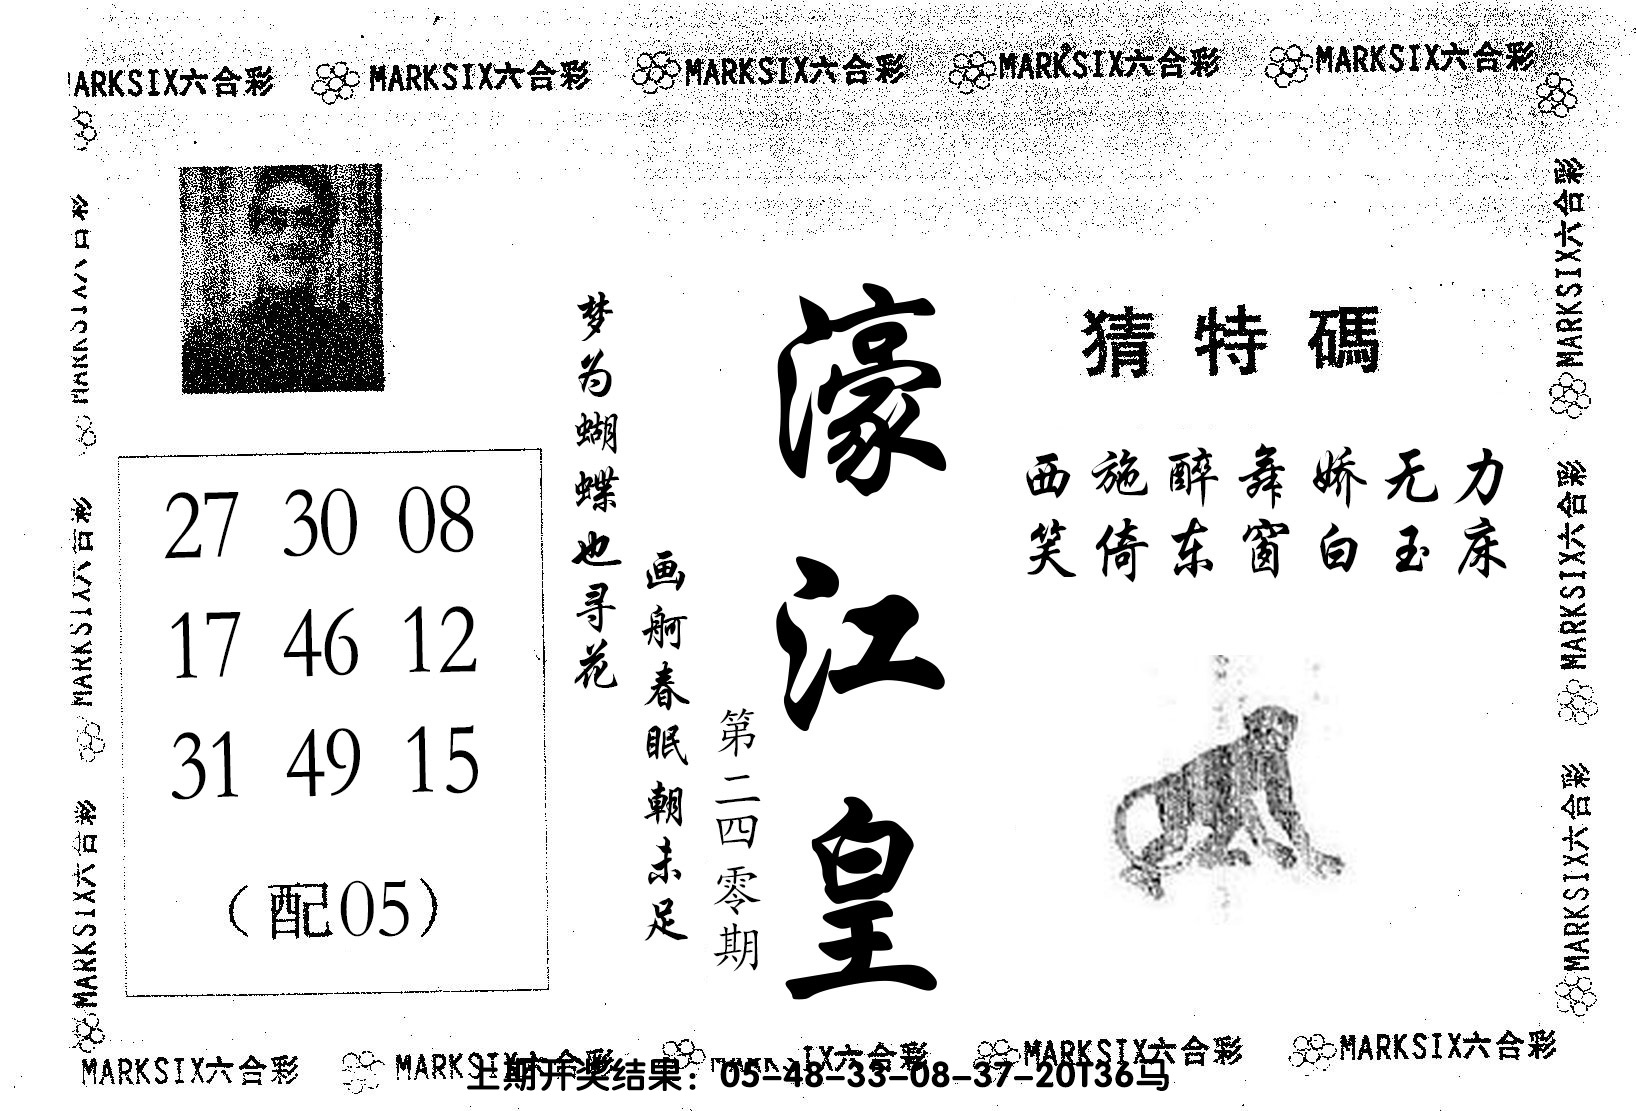 MARKSIX六合彩 MARKSIX六合彩 MARKSIX六合彩 MARKSIX六合彩
猜特碼
西施醉舞娇无力
笑倚东窗白玉床
濠江皇
第二四零期
梦为蝴蝶也寻花
画舸春眠朝未足
27 30 08
17 46 12
31 49 15
（配05）
MARKSIX六合彩
MARKSIX六合彩
MARKSIX六合彩
MARKSIX六合彩
MARKSIX六合彩
MARKSIX六合彩 MARKSIX六合彩 MARKSIX六合彩 MARKSIX六合彩
上期开奖结果：05-48-33-08-37-20T36马